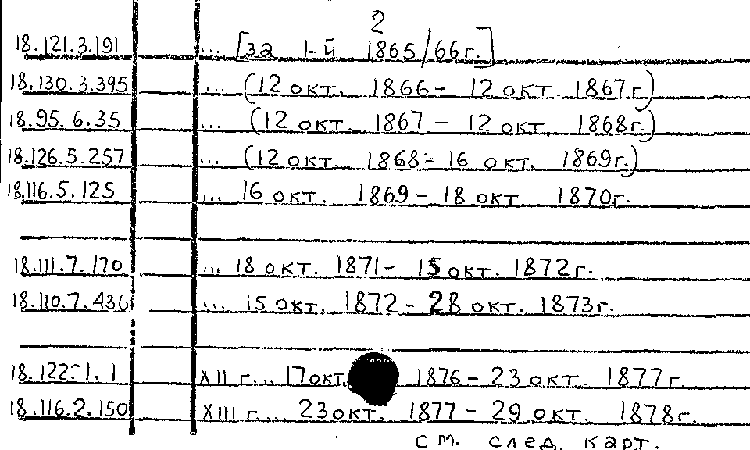 2
18.121.3.191 ... [за 1-й 1865/66г.]
18.130.3.395 ... (12 окт. 1866 - 12 окт. 1867г.)
18.95.6.35 ... (12 окт. 1867 - 12 окт. 1868г.)
18.126.5.257 ... (12 окт. 1868 - 16 окт. 1869г.)
18.116.5.125 ... 16 окт. 1869 - 18 окт 1870г.
18.111.7.170 ... 18 окт. 1871 - 15 окт. 1872г.
18.110.7.436 ... 15 окт. 1872 - 28 окт. 1873г.
XII г... 17 окт. 1876 - 23 окт. 1877г.
18.116.2.150 XIII г... 23 окт. 1877 - 29 окт. 1878г.
см. след. карт.